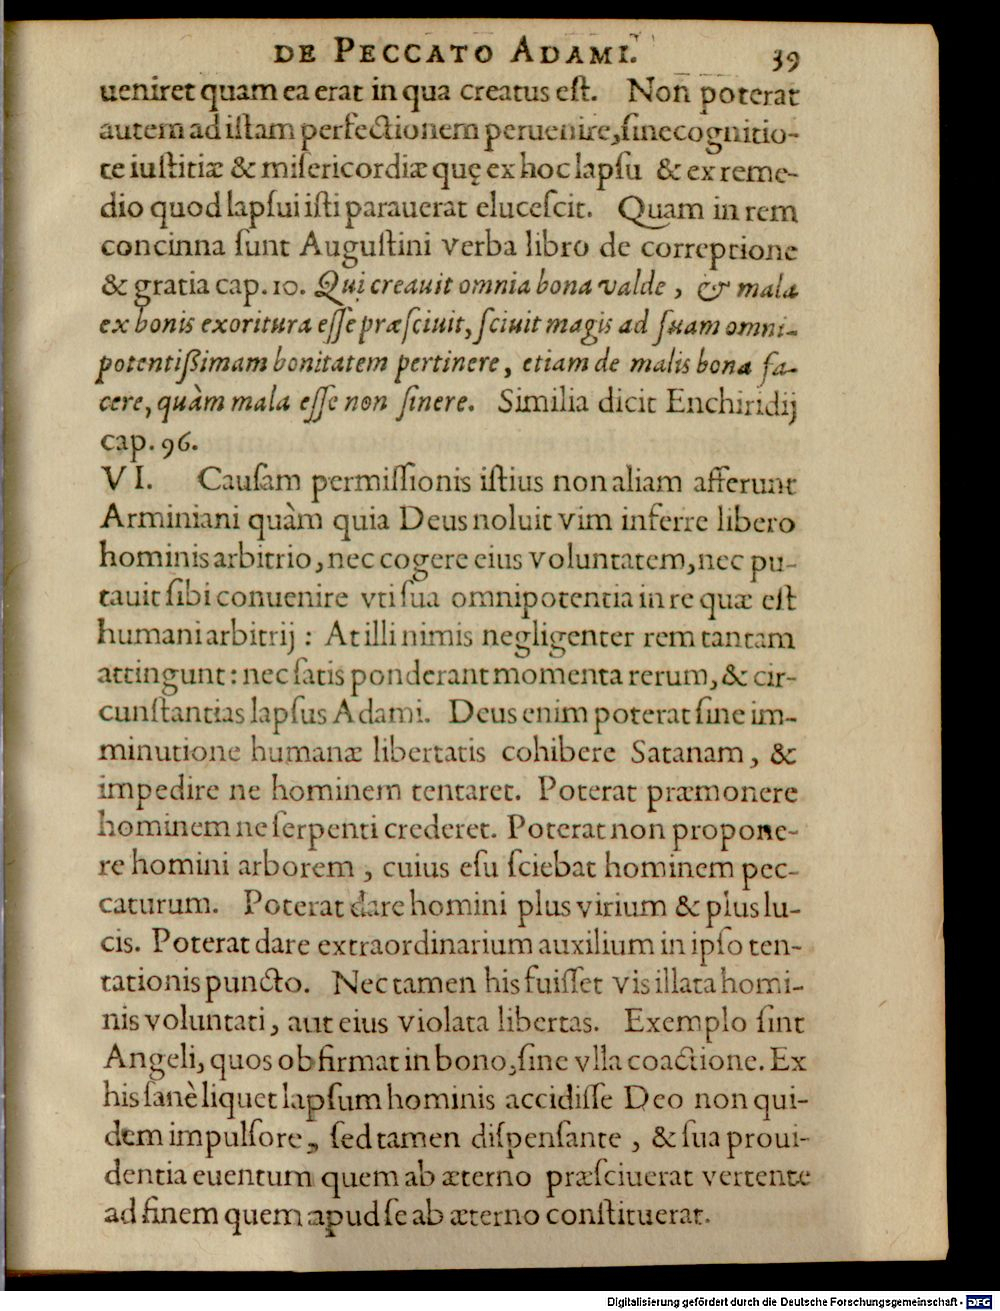 DE PECCATO ADAMI. 39
ueniret quam ea erat in qua creatus eſt. Non poterat
autem ad iſtam perfectionem peruenire, ſine cognitio-
te iuſtitiæ & miſericordiæ quę ex hoc lapſu & ex reme-
dio quod lapſui iſti parauerat eluceſcit. Quam in rem
concinna ſunt Auguſtini verba libro de correptione
& gratia cap. 10. Qui creauit omnia bona valde, & mala
ex bonis exoritura eſſe præſciuit, ſciuit magis ad ſuam omni-
potentißimam bonitatem pertinere, etiam de malis bona fa-
cere, quàm mala eſſe non ſinere. Similia dicit Enchiridij
cap. 96.
VI. Cauſam permiſſionis iſtius non aliam afferunt
Arminiani quàm quia Deus noluit vim inferre libero
hominis arbitrio, nec cogere eius voluntatem, nec pu-
tauit ſibi conuenire vti ſua omnipotentia in re quæ eſt
humani arbitrij : At illi nimis negligenter rem tantam
attingunt: nec ſatis ponderant momenta rerum, & cir-
cunſtantias lapſus Adami. Deus enim poterat ſine im-
minutione humanæ libertatis cohibere Satanam, &
impedire ne hominem tentaret. Poterat præmonere
hominem ne ſerpenti crederet. Poterat non propone-
re homini arborem, cuius eſu ſciebat hominem pec-
caturum. Poterat dare homini plus virium & plus lu-
cis. Poterat dare extraordinarium auxilium in ipſo ten-
tationis puncto. Nec tamen his fuiſſet vis illata homi-
nis voluntati, aut eius violata libertas. Exemplo ſint
Angeli, quos obfirmat in bono, ſine vlla coactione. Ex
his ſanè liquet lapſum hominis accidiſſe Deo non qui-
dem impulſore, ſed tamen diſpenſante, & ſua proui-
dentia euentum quem ab æterno præſciuerat vertente
ad finem quem apud ſe ab æterno conſtituerat.
Digitalisierung gefördert durch die Deutsche Forschungsgemeinschaft - DFG